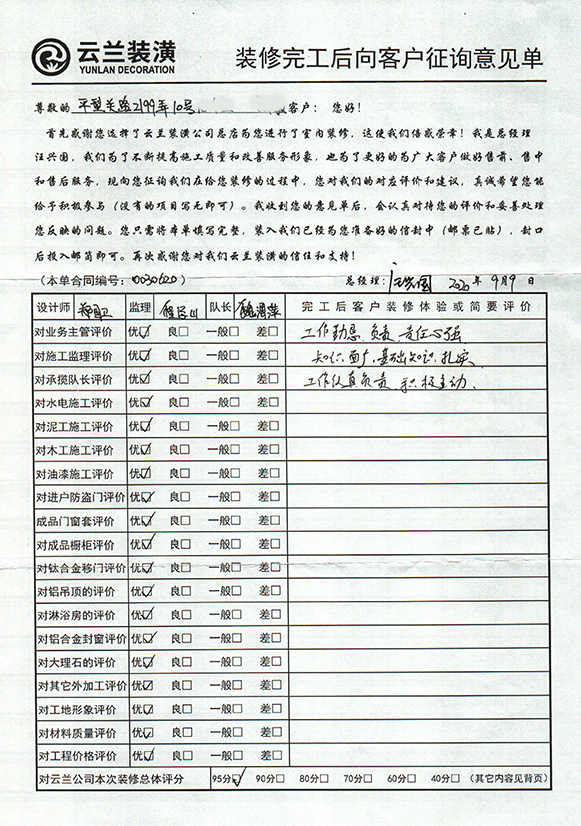 云兰装潢
YUNLAN DECORATION
装修完工后向客户征询意见单
尊敬的 平型关路2199弄10号 客户： 您好！
首先感谢您选择了云兰装潢公司总店为您进行了室内装修，这使我们倍感荣幸！我是总经理
汪兴国，我们为了不断提高施工质量和改善服务形象，也为了更好的为广大客户做好售前、售中
和售后服务，现向您征询我们在给您装修的过程中，您对我们的对应评价和建议，真诚希望您能
给予积极参与（没有的项目写无即可）。我收到您的意见单后，会认真对待您的评价和妥善处理
您反映的问题。您只需将本单填写完整，装入我们已经为您准备好的信封中（邮票已贴），封口
后投入邮筒即可。再次感谢您对我们云兰装潢的信任和支持！
（本单合同编号：0030620） 总经理：汪兴国 2020 年 9月9日
设计师 监理 队长 完工后客户装修体验或简要评价
对业务主管评价 优☑ 良□ 一般□ 差□ 工作勤恳、负责、责任心强
对施工监理评价 优☑ 良□ 一般□ 差□ 知识面广、基础知识扎实
对承揽队长评价 优☑ 良□ 一般□ 差□ 工作认真负责、积极主动、
对水电施工评价 优☑ 良□ 一般□ 差□
对泥工施工评价 优☑ 良□ 一般□ 差□
对木工施工评价 优☑ 良□ 一般□ 差□
对油漆施工评价 优☑ 良□ 一般□ 差□
对进户防盗门评价 优☑ 良□ 一般□ 差□
成品门窗套评价 优☑ 良□ 一般□ 差□
对成品橱柜评价 优☑ 良□ 一般□ 差□
对钛合金移门评价 优☑ 良□ 一般□ 差□
对铝吊顶的评价 优☑ 良□ 一般□ 差□
对淋浴房的评价 优☑ 良□ 一般□ 差□
对铝合金封窗评价 优☑ 良□ 一般□ 差□
对大理石的评价 优☑ 良□ 一般□ 差□
对其它外加工评价 优☑ 良□ 一般□ 差□
对工地形象评价 优☑ 良□ 一般□ 差□
对材料质量评价 优☑ 良□ 一般□ 差□
对工程价格评价 优☑ 良□ 一般□ 差□
对云兰公司本次装修总体评分 95分☑ 90分□ 80分□ 70分□ 60分□ 40分□ （其它内容见背页）